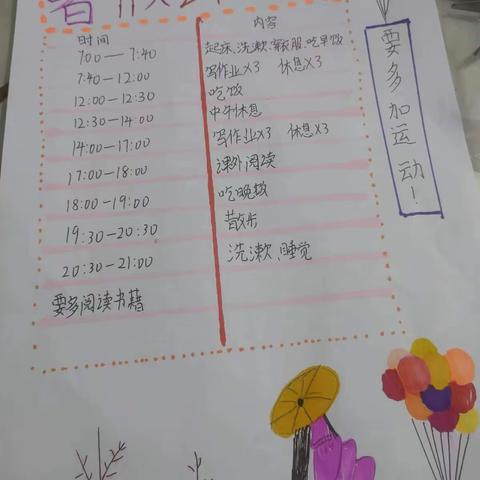 时间 内容
7:00—7:40 起床、洗漱、穿衣服、吃早饭
7:40—12:00 写作业×3 休息×3
12:00—12:30 吃饭
12:30—14:00 中午休息
14:00—17:00 写作业×3 休息×3
17:00—18:00 课外阅读
18:00—19:00 吃晚饭
19:30—20:30 散步
20:30—21:00 洗漱、睡觉
要多阅读书籍
要多加运动!